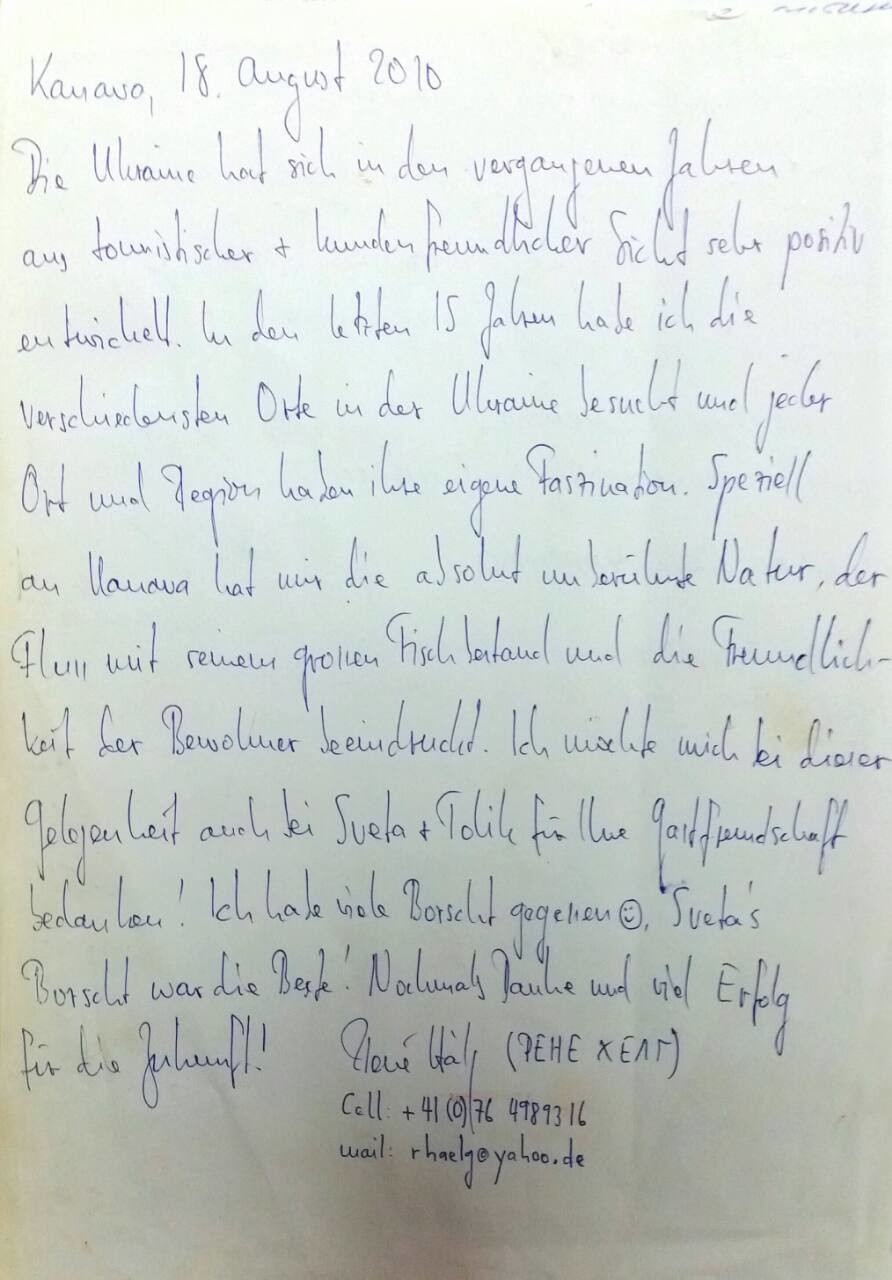 Kanava, 18. August 2010
Die Ukraine hat sich in den vergangenen Jahren
aus touristischer + kundenfreundlicher Sicht sehr positiv
entwickelt. In den letzten 15 Jahren habe ich die
verschiedensten Orte in der Ukraine besucht und jeder
Ort und Region haben ihre eigene Faszination. Speziell
an Kanava hat mir die absolut unberührte Natur, der
Fluss mit seinem grossen Fischbestand und die Freundlich-
keit der Bewohner beeindruckt. Ich möchte mich bei dieser
Gelegenheit auch bei Sveta + Tolik für Ihre Gastfreundschaft
bedanken! Ich habe viele Borscht gegessen☺, Sveta's
Borscht war die Beste! Nochmals Danke und viel Erfolg
für die Zukunft! René Hälg (РЕНЕ ХЕЛГ)
Cell: +41(0)76 4989316
mail: rhaelg@yahoo.de